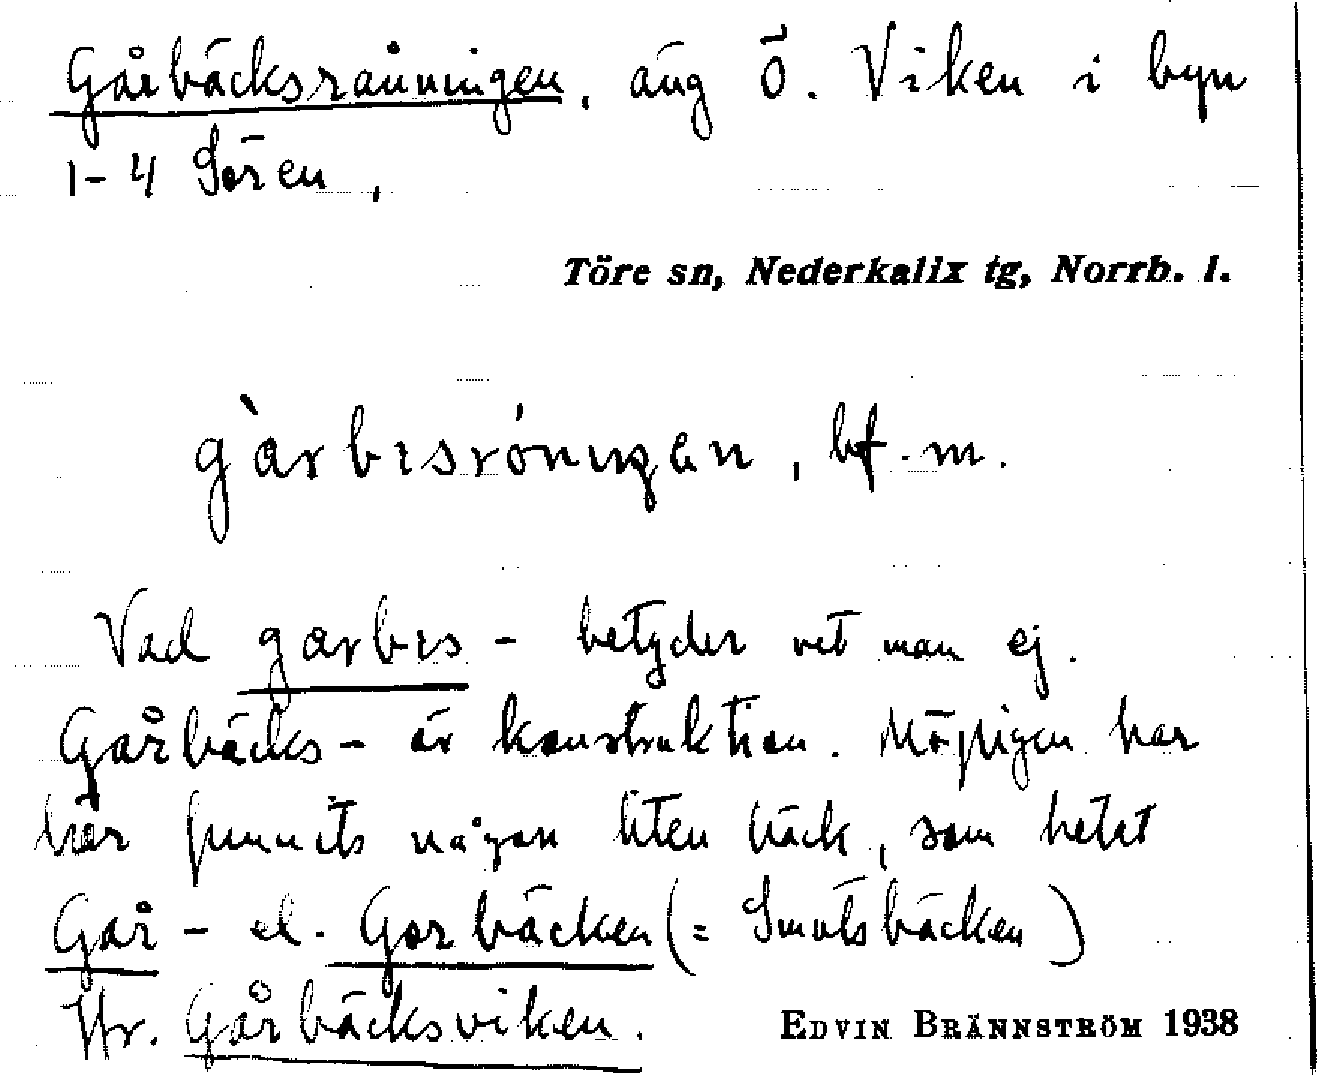 Gårbäcksråningen, äng Ö. Viken i byn
1-4 Sören,
Töre sn, Nederkalix tg, Norrb. l.
bf. m.
Vad garbɪs - betyder vet man ej.
Gårbäcks- är konstruktion. Möjligen har
här funnits någon liten bäck, som hetat
Går - el. Gorbäcken (= Smutsbäcken)
Jfr. Gårbäcksviken.
EDVIN BRÄNNSTRÖM 1938